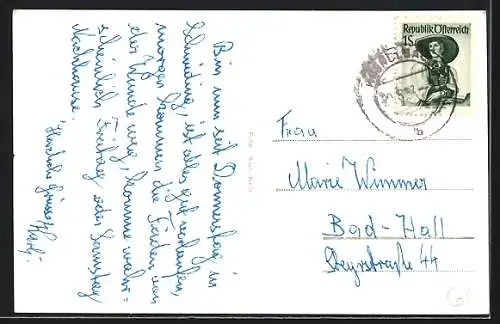 Bin nun seit Donnerstag in
Schwding, ist alles gut verlaufen,
morgen kommen die Fäden von
der Wunde weg, komme wahr=
scheinlich Freitag oder Samstag
Nachhause.
Herzliche Grüsse
Republik Österreich
1S
Frau
Marie Wimmer
Bad-Hall
Steyrstraße 44